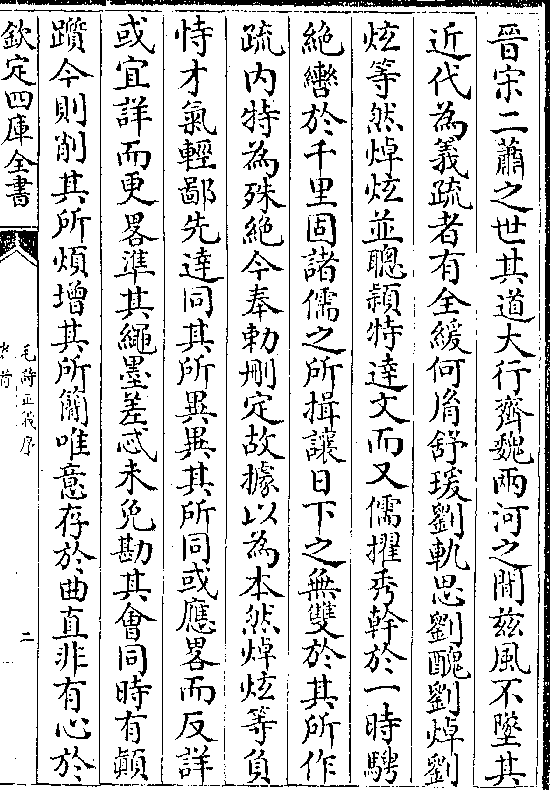 晉宋二蕭之世其道大行齊魏兩河之間兹風不墜其
近代為義疏者有全緩何胤舒瑗劉軌思劉醜劉焯劉
炫等然焯炫並聰穎特達文而又儒擢秀幹於一時騁
絶轡於千里固諸儒之所揖讓日下之無雙於其所作
疏内特為殊絶今奉勅刪定故據以為本然焯炫等負
恃才氣輕鄙先達同其所異異其所同或應畧而反詳
或宜詳而更畧準其繩墨差忒未免勘其會同時有顛
躓今則削其所煩增其所簡唯意存於曲直非有心於
欽定四庫全書
毛詩正義序
二